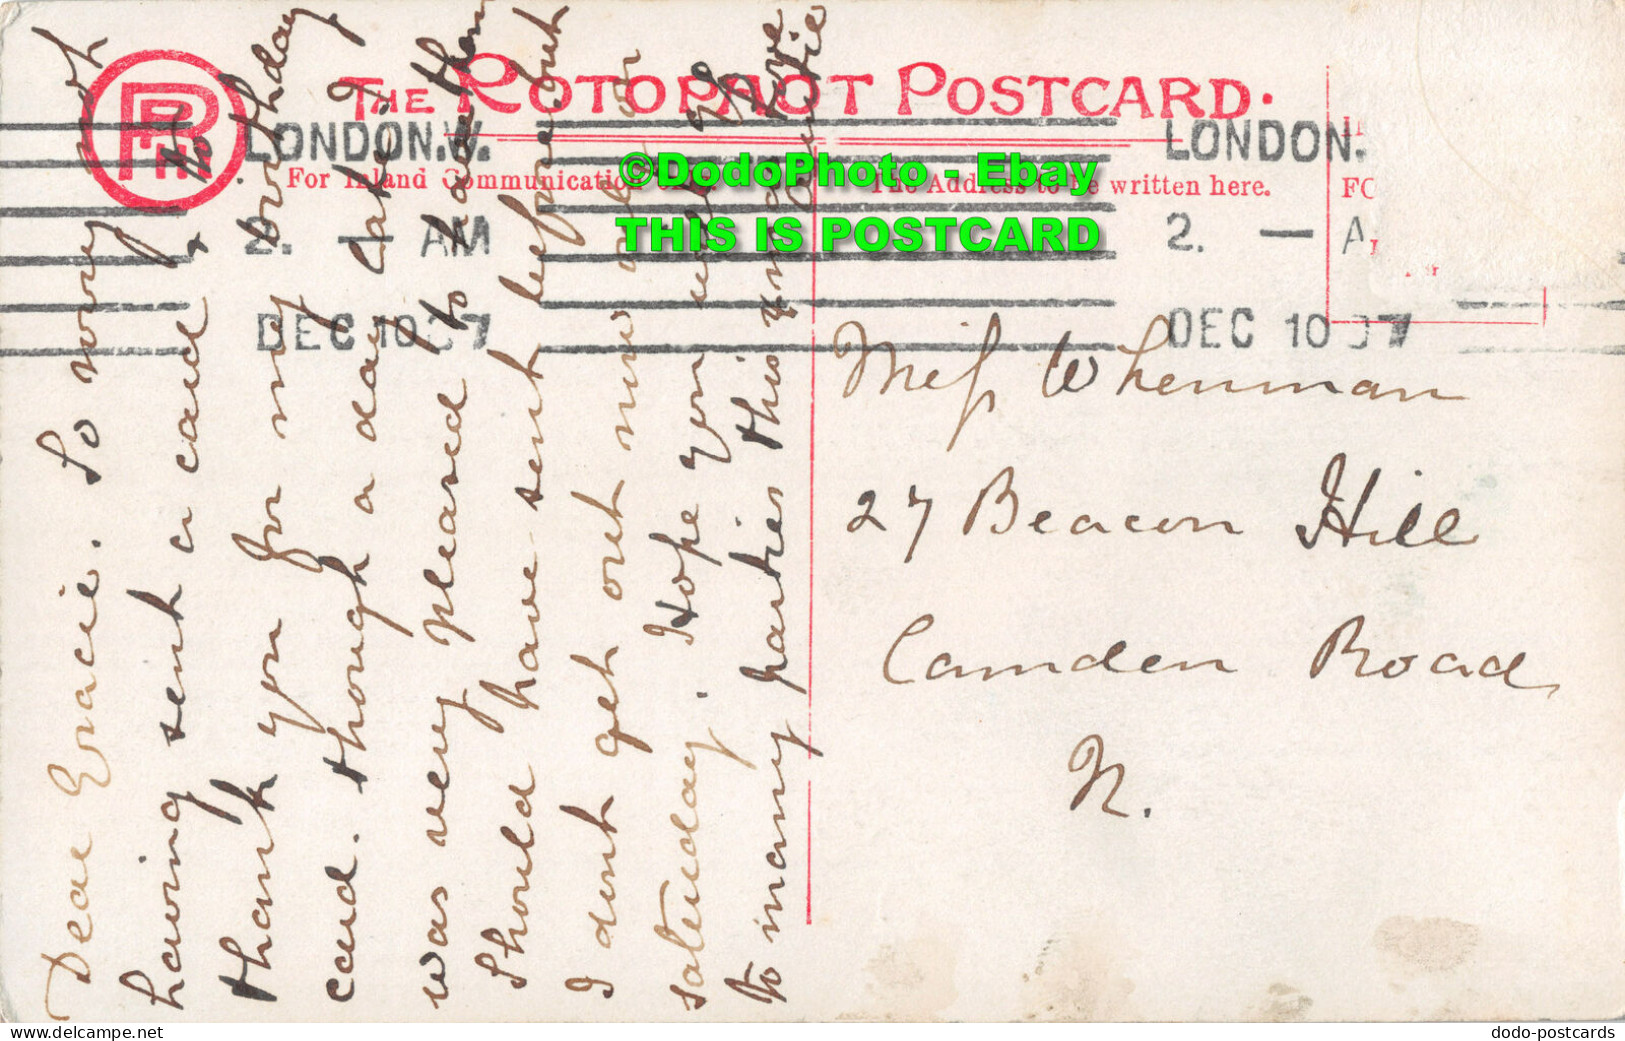 THE ROTOPHOT POSTCARD.
RPH
For Inland Communication only.
The Address to be written here.
LONDON.W.
2. — AM
DEC 10 07
LONDON.
2. — A
DEC 10 07
©DodoPhoto - Ebay
THIS IS POSTCARD
Miss Whenman
27 Beacon Hill
Camden Road
N.
Dear Gracie. So sorry not
having sent a card, to
thank you for my birthday
card. though a day late. I
was very pleased to have them
Should have sent before but
I dont get out now only on
saturday. Hope you wont go
to many parties this
love
Auntie
dodo-postcards